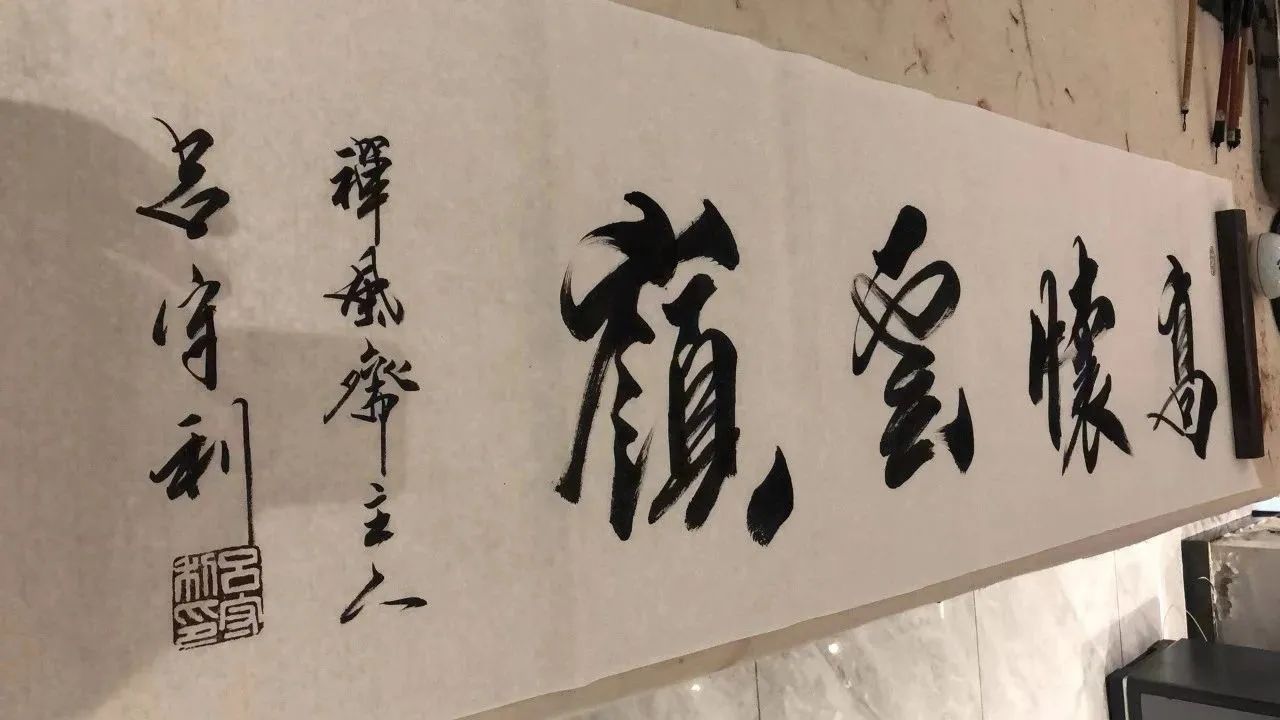 高懷雲嶺
禪風齋主人
吕守利
吕守利印